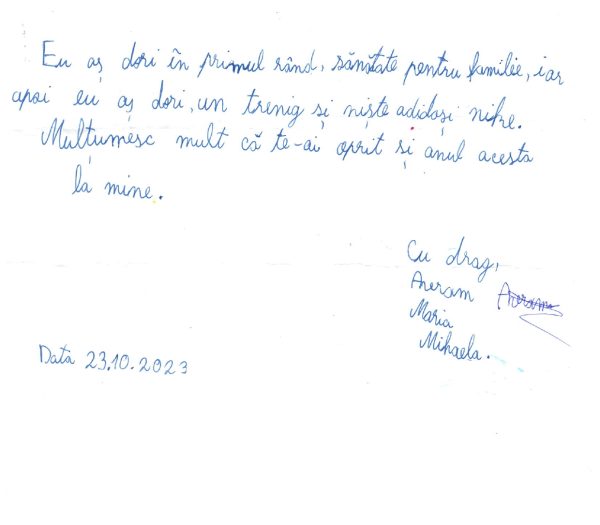 Eu aș dori în primul rând, sănătate pentru familie, iar
apoi eu aș dori, un trenig și niște adidași nike.
Mulțumesc mult că te-ai oprit și anul acesta
la mine.
Cu drag,
Averam
Maria
Mihaela.
Data 23.10.2023